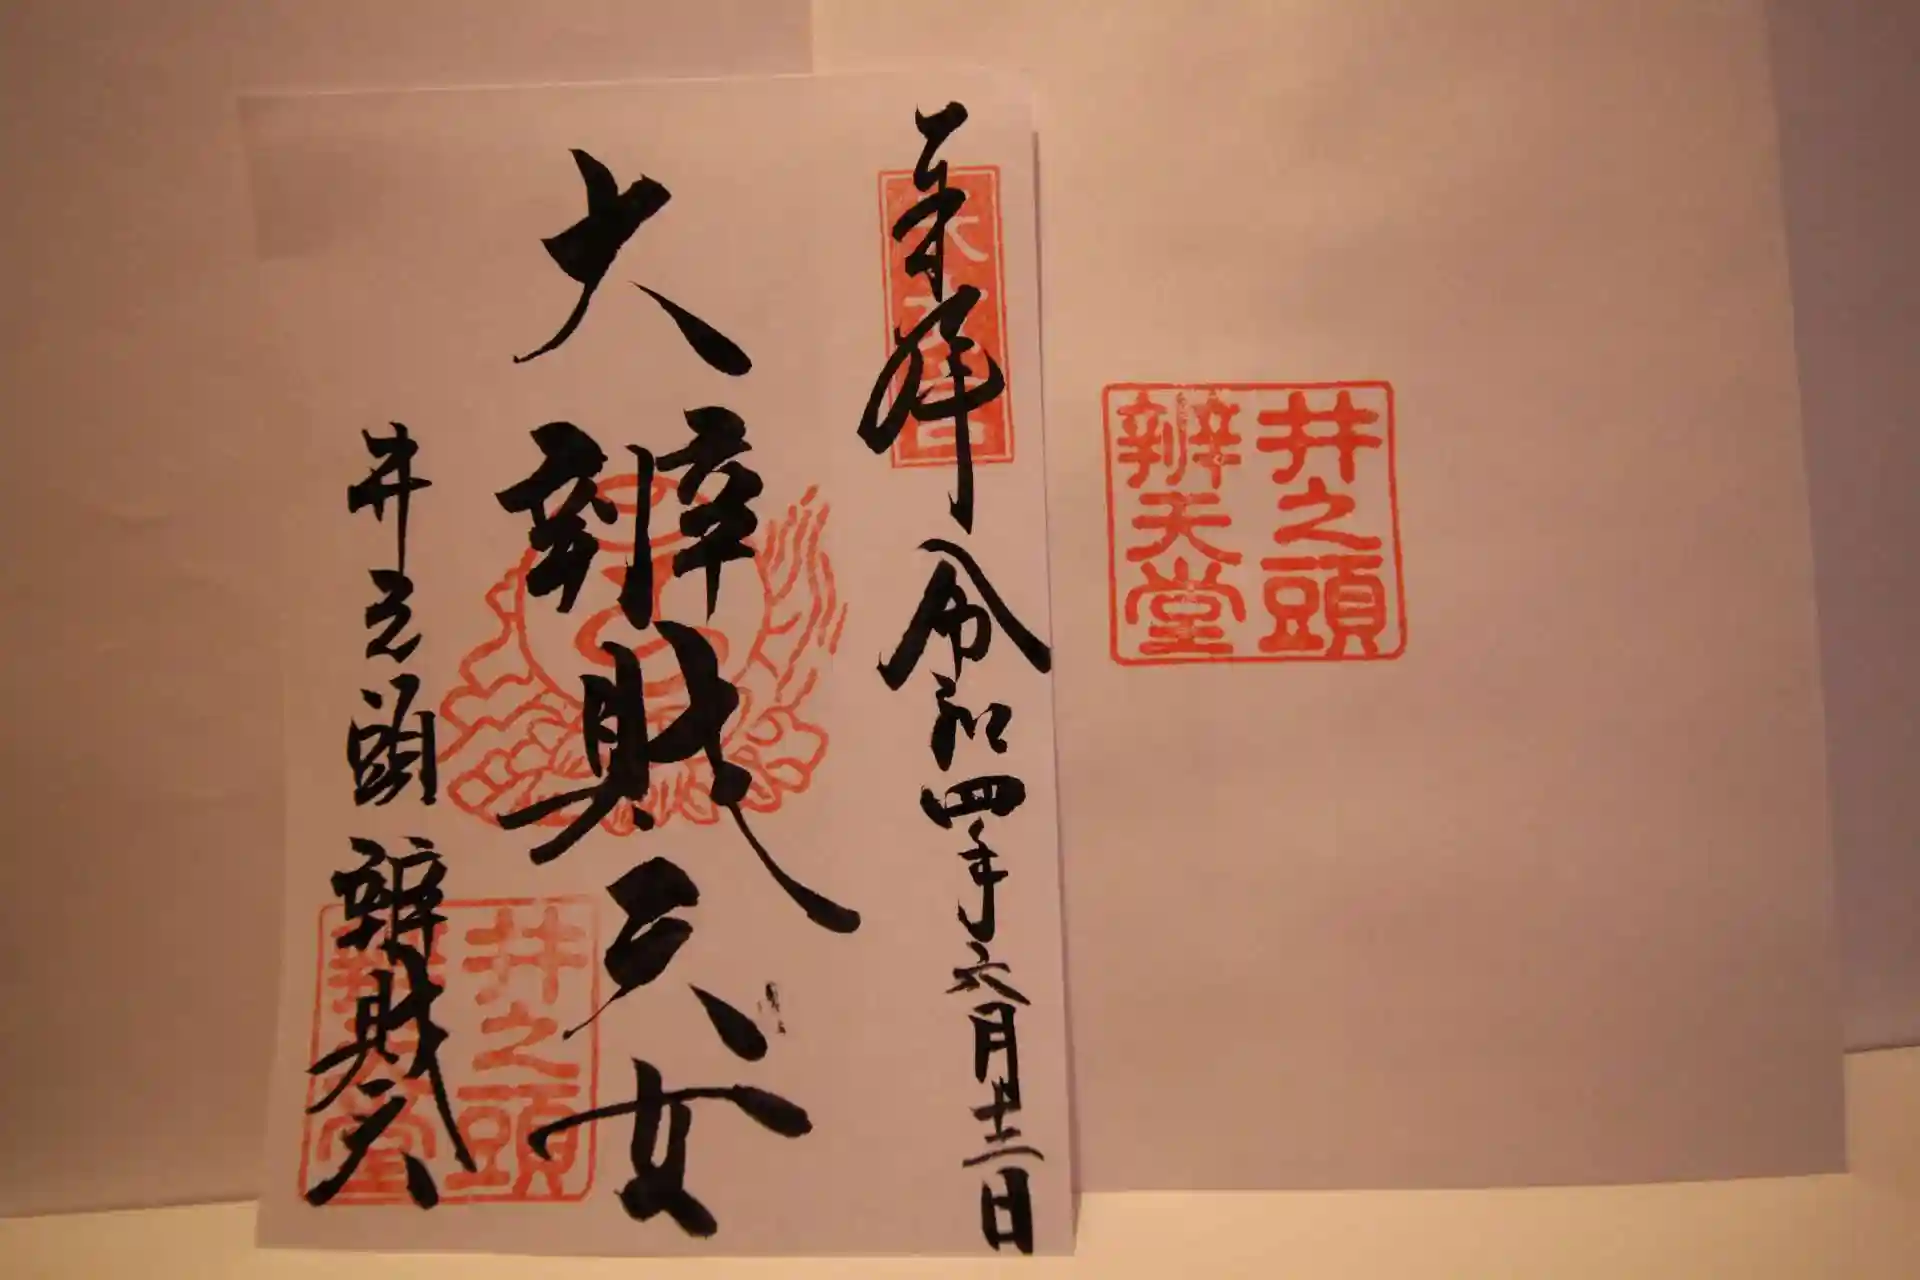 井之頭
辨天堂
奉拝 令和四年六月十三日
大辨財天女
井之頭 辨財天
井之頭
辨天堂